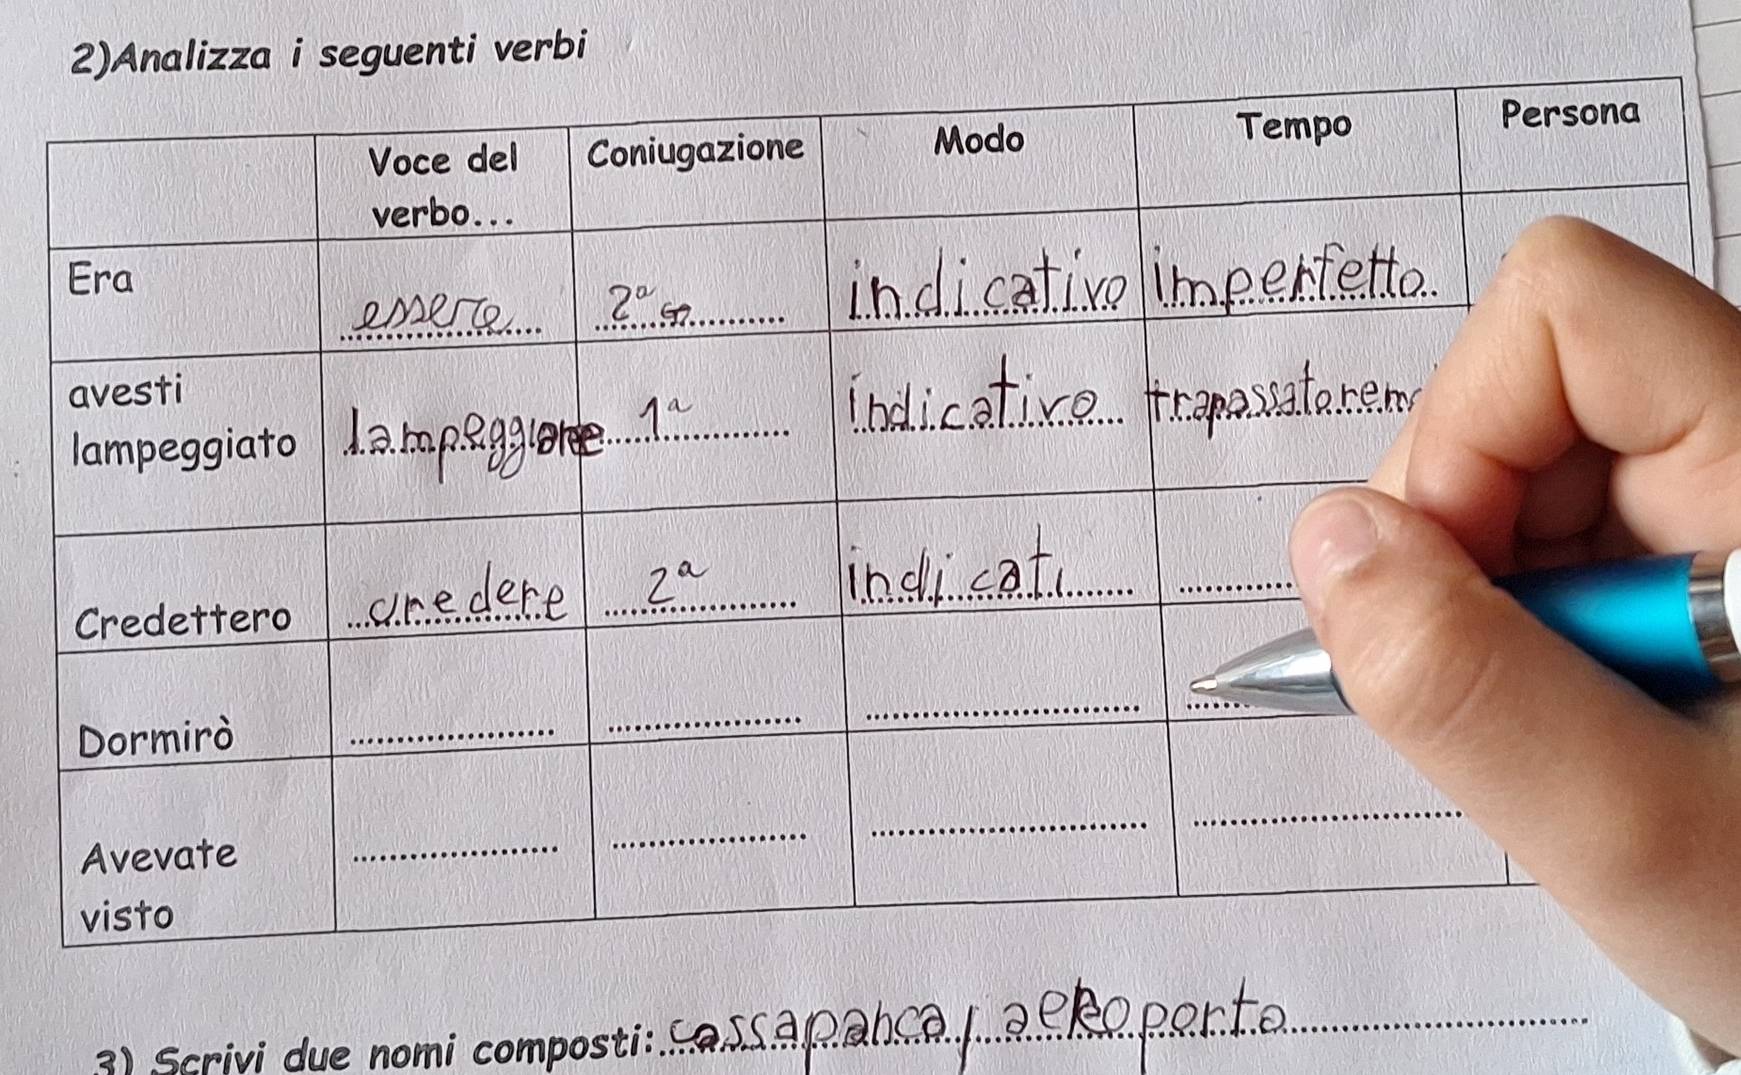 2)Analizza i seguenti verbi
Voce del verbo... Coniugazione Modo Tempo Persona
Era essere 2ª indicativo imperfetto
avesti lampeggiato lampeggiare 1ª indicativo trapassato rem
Credettero credere 2ª indicati
Dormirò
Avevate visto
3) Scrivi due nomi composti: cassapanca, aeroporto